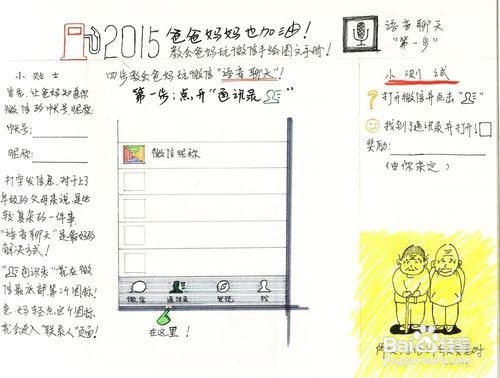 2015 爸爸妈妈也加油!
教会爸妈玩微信手绘图文手册!
语音聊天
"第一步"
小贴士
首先,让爸妈知道你
微信的帐号昵称
帐号:
昵称:
打字发信息,对于上了
年级的父母来说,是比
较复杂的一件事
"语音聊天"是最好的
解决方式!
通讯录"就在微
信最底部第2个图标!
爸妈轻点这个图标,
就会进入"联系人"页面!
四步教会爸妈玩微信"语音聊天"!
第一步:点开"通讯录
微信昵称
微信
通讯录
发现
我
在这里!
小测试
? 打开微信并点击"
找到了通讯录并打开!
奖励:
(由你来定)
Baidu经验